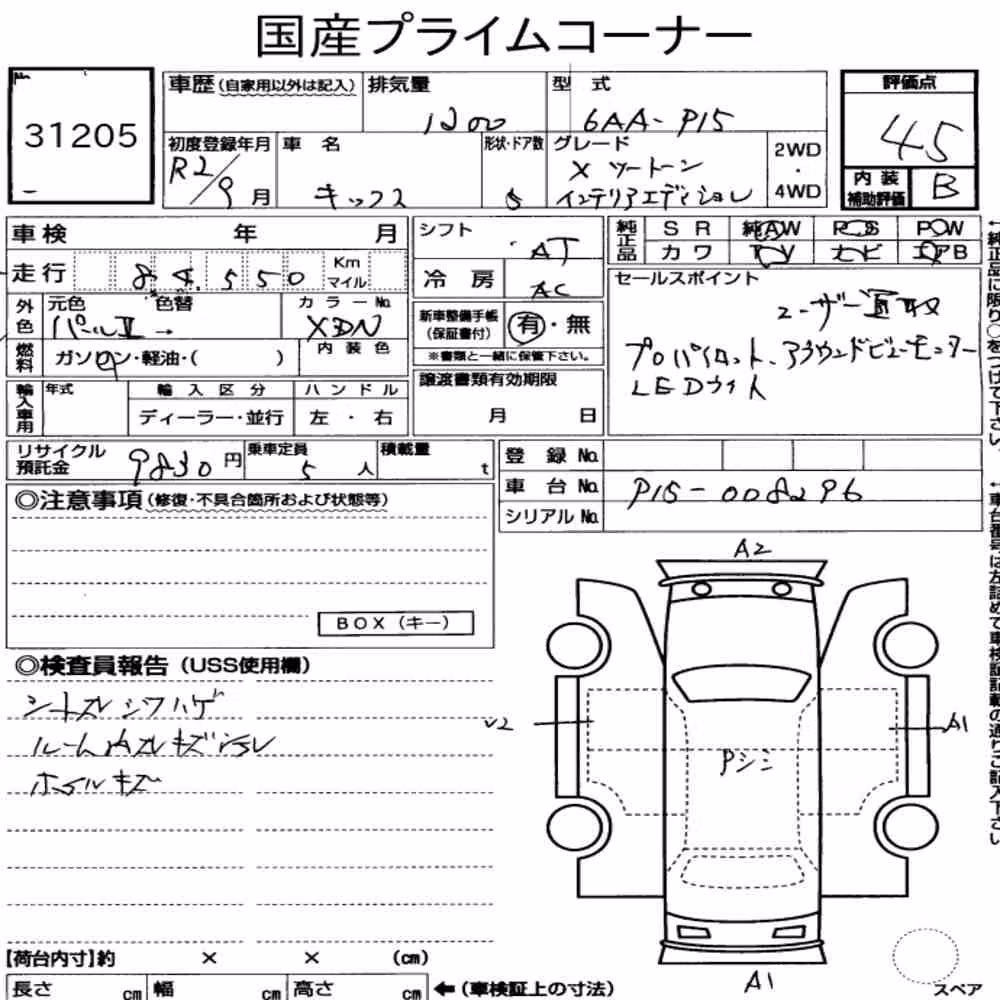 国産プライムコーナー
No.
31205
車歴(自家用以外は記入)
排気量
1200
型式
6AA-P15
評価点
45
内装補助評価
B
初度登録年月
R2/9月
車名
キックス
形状・ドア数
5
グレード
X ツートーン
インテリアエディション
2WD
・
4WD
車検 年 月
走行 84,550 Km マイル
外色
元色 色替 カラーNo.
パールⅡ→ XDN
燃料
ガソリン・軽油・( )
内装色
輸入車用
年式
輸入区分
ハンドル
ディーラー・並行
左・右
シフト
AT
冷房
AC
新車整備手帳(保証書付)
有・無
※書類と一緒に保管下さい。
譲渡書類有効期限
月 日
純正品
SR 純AW PS PW
カワ TV ナビ エアB
セールスポイント
ユーザー買取
プロパイロット、アラウンドビューモニター
LEDライト
←純正品に限り○をつけて下さい。
リサイクル預託金
9830円
乗車定員
5人
積載量
t
登録No.
車台No.
P15-008296
シリアルNo.
←車台番号は左詰めで車検証記載の通りご記入下さい。
◎注意事項(修復・不具合箇所および状態等)
BOX(キー)
◎検査員報告(USS使用欄)
シートスレシワハゲ
ルーム内スレキズ汚レ
ホイルキズ
A2
A1
Pシミ
A1
スペア
【荷台内寸】約 × × (cm)
長さ cm 幅 cm 高さ cm ←(車検証上の寸法)